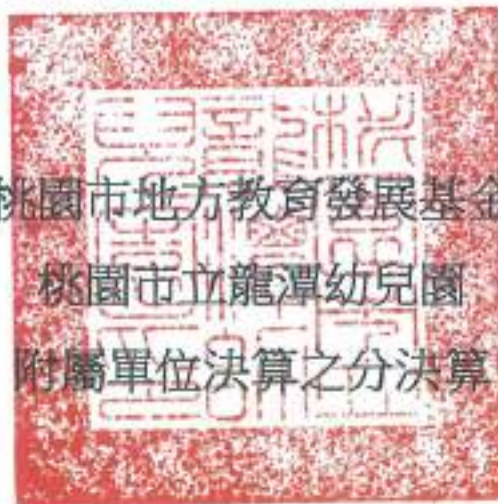 桃園市地方教育發展基金
桃園市立龍潭幼兒園
附屬單位決算之分決算